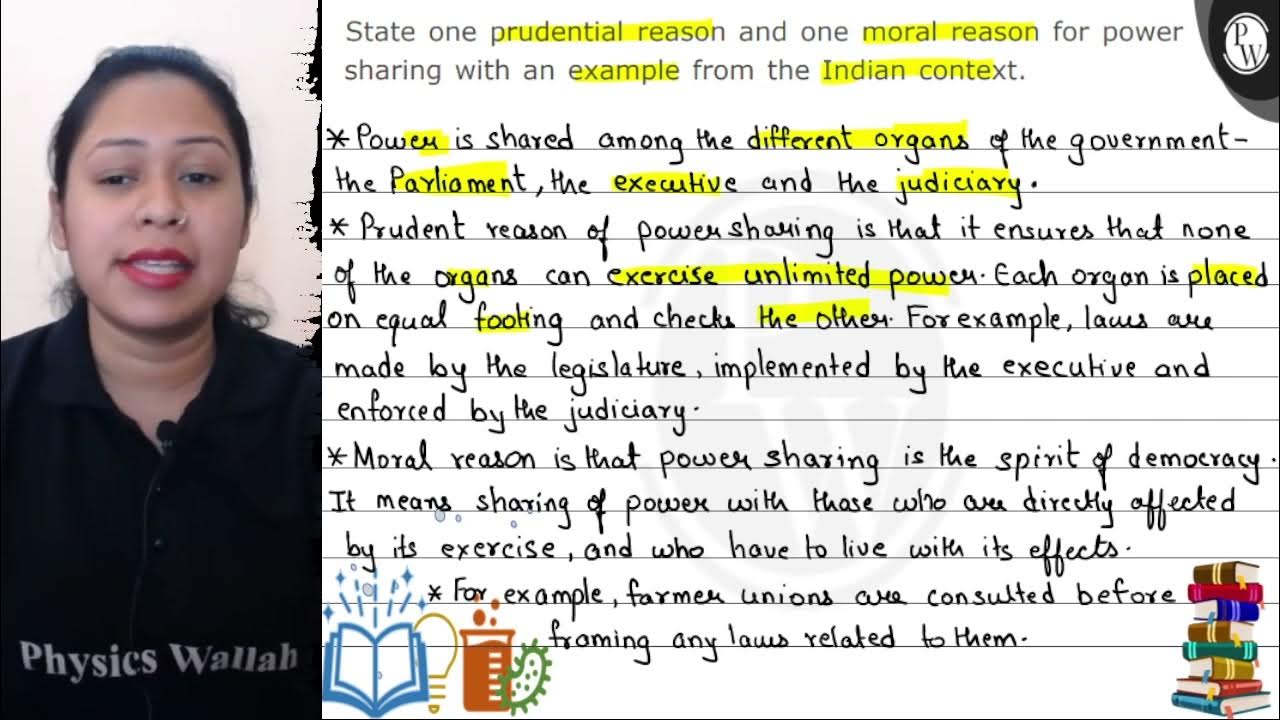 State one prudential reason and one moral reason for power
sharing with an example from the Indian context.
PW
* Power is shared among the different organs of the government-
the Parliament, the executive and the judiciary.
* Prudent reason of power sharing is that it ensures that none
of the organs can exercise unlimited power. Each organ is placed
on equal footing and checks the other. For example, laws are
made by the legislature, implemented by the executive and
enforced by the judiciary.
* Moral reason is that power sharing is the spirit of democracy.
It means sharing of power with those who are directly affected
by its exercise, and who have to live with its effects.
* For example, farmer unions are consulted before
framing any laws related to them.
Physics Wallah